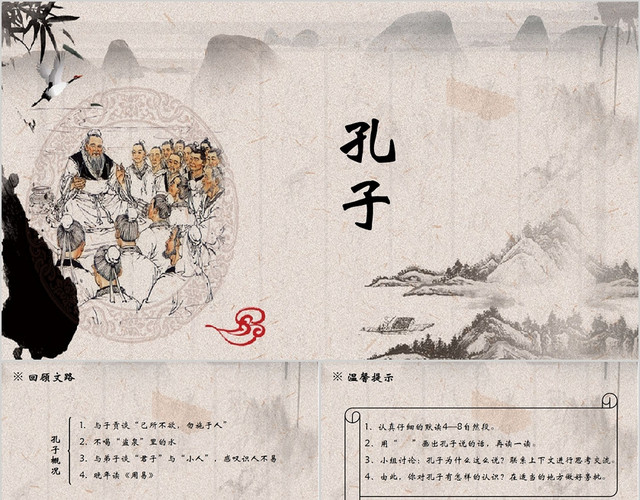 孔子
※ 回顾文路
孔子概况
1. 与子贡谈“己所不欲，勿施于人”
2. 不喝“盗泉”里的水
3. 与弟子谈“君子”与“小人”，感叹识人不易
4. 晚年读《周易》
※ 温馨提示
1. 认真仔细的默读4—8自然段。
2. 用“ ”画出孔子说的话，再读一读。
3. 小组讨论：孔子为什么这么说？联系上下文进行思考交流。
4. 由此，你对孔子有怎样的认识？在适当的地方做好旁批。